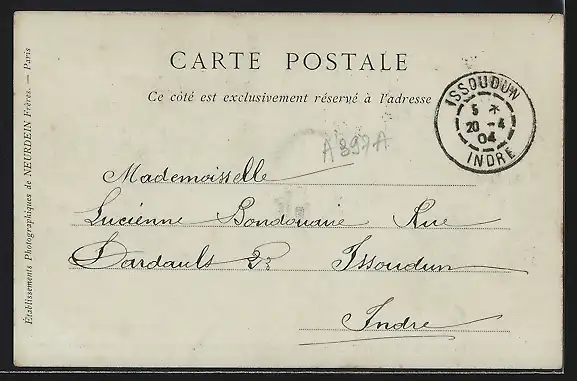 CARTE POSTALE
Ce côté est exclusivement réservé à l'adresse
ISSOUDUN
5 *
20 - 4
04
INDRE
A 397A
Mademoiselle
Lucienne Bondouaire Rue
Dardault 23 Issoudun
Indre
Établissements Photographiques de NEURDEIN Frères. — Paris